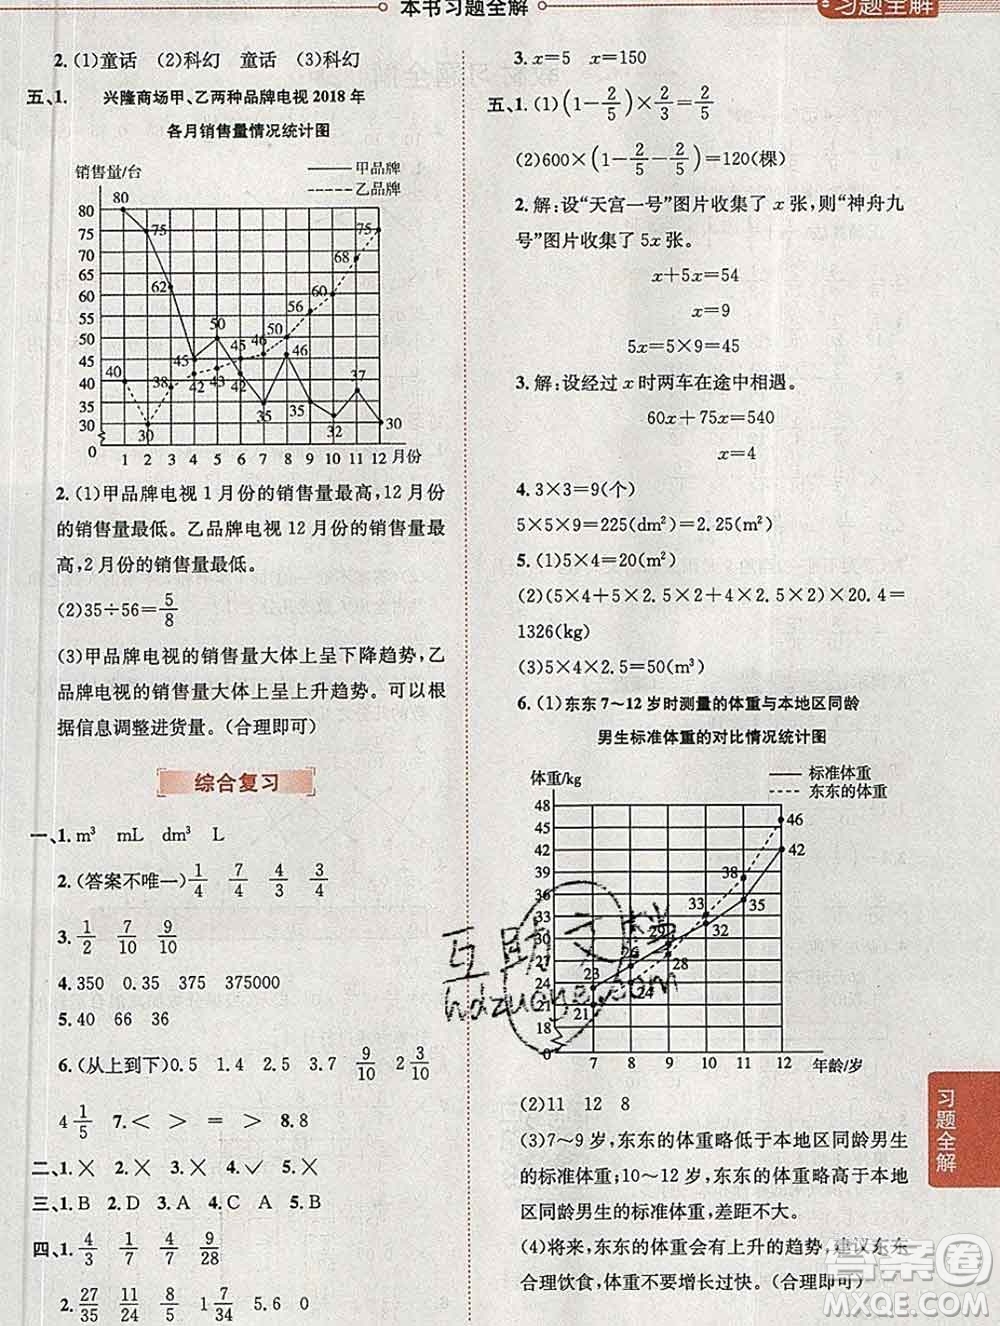 本书习题全解
习题全解
2. (1)童话 (2)科幻 童话 (3)科幻
五、1. 兴隆商场甲、乙两种品牌电视 2018 年
各月销售量情况统计图
销售量/台
甲品牌
乙品牌
80
75
70
65
60
55
50
45
40
35
30
0
80 75 62 50 46 35 35 32 37 30
40 30 38 42 43 45 46 50 56 60 68 75
42
1 2 3 4 5 6 7 8 9 10 11 12 月份
2. (1)甲品牌电视 1 月份的销售量最高,12 月份
的销售量最低。乙品牌电视 12 月份的销售量最
高,2 月份的销售量最低。
(2)35÷56=5/8
(3)甲品牌电视的销售量大体上呈下降趋势,乙
品牌电视的销售量大体上呈上升趋势。可以根
据信息调整进货量。(合理即可)
综合复习
一、1. m³ mL dm³ L
2. (答案不唯一) 1/4 7/4 4/3 3/4
3. 1/2 7/10 9/10
4. 350 0.35 375 375000
5. 40 66 36
6. (从上到下)0.5 1.4 2.7 3.5 9/10 2 3/10
4 1/5 7. < > = > 8. 8
二、1. × 2. × 3. × 4. ✓ 5. ×
三、1. B 2. D 3. A 4. A 5. B
四、1. 4/3 1/7 4/7 9/28
2. 27/35 11/24 8/5 1 7/9 5.6 0
3. x=5 x=150
五、1. (1)(1-2/5)×2/3=2/5
(2)600×(1-2/5-2/5)=120(棵)
2. 解:设“天宫一号”图片收集了 x 张,则“神舟九
号”图片收集了 5x 张。
x+5x=54
x=9
5x=5×9=45
3. 解:设经过 x 时两车在途中相遇。
60x+75x=540
x=4
4. 3×3=9(个)
5×5×9=225(dm²)=2.25(m²)
5. (1)5×4=20(m²)
(2)(5×4+5×2.5×2+4×2.5×2)×20.4=
1326(kg)
(3)5×4×2.5=50(m³)
6. (1)东东 7~12 岁时测量的体重与本地区同龄
男生标准体重的对比情况统计图
体重/kg
标准体重
东东的体重
48
45
42
39
36
33
30
27
24
21
18
0
23 26 29 32 35 42
21 24 28 33 38 46
7 8 9 10 11 12 年龄/岁
(2)11 12 8
(3)7~9 岁,东东的体重略低于本地区同龄男生
的标准体重;10~12 岁,东东的体重略高于本地
区同龄男生的标准体重,差距不大。
(4)将来,东东的体重会有上升的趋势,建议东东
合理饮食,体重不要增长过快。(合理即可)
习题全解
互助文档
hdzuoye.com
答案圈
MXQE.COM